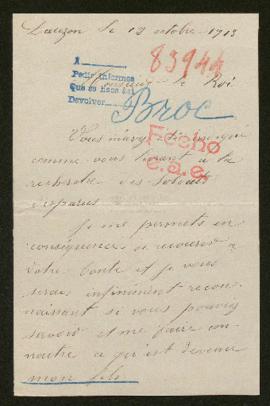 Lauzon le 12 octobre 1915
83944
A
Pedir informes
Que se hace así
Devolver
Monsieur le Roi
Broc
Fecho
c.a.e.
Vous m'avez été indiqué
comme vous livrant à la
recherche des soldats
disparus
Je me permets en
conséquence de recourir à
votre bonté et je vous
serais infiniment recon-
naissant si vous pouviez
savoir et me faire con-
naître ce qu'est devenu
mon fils